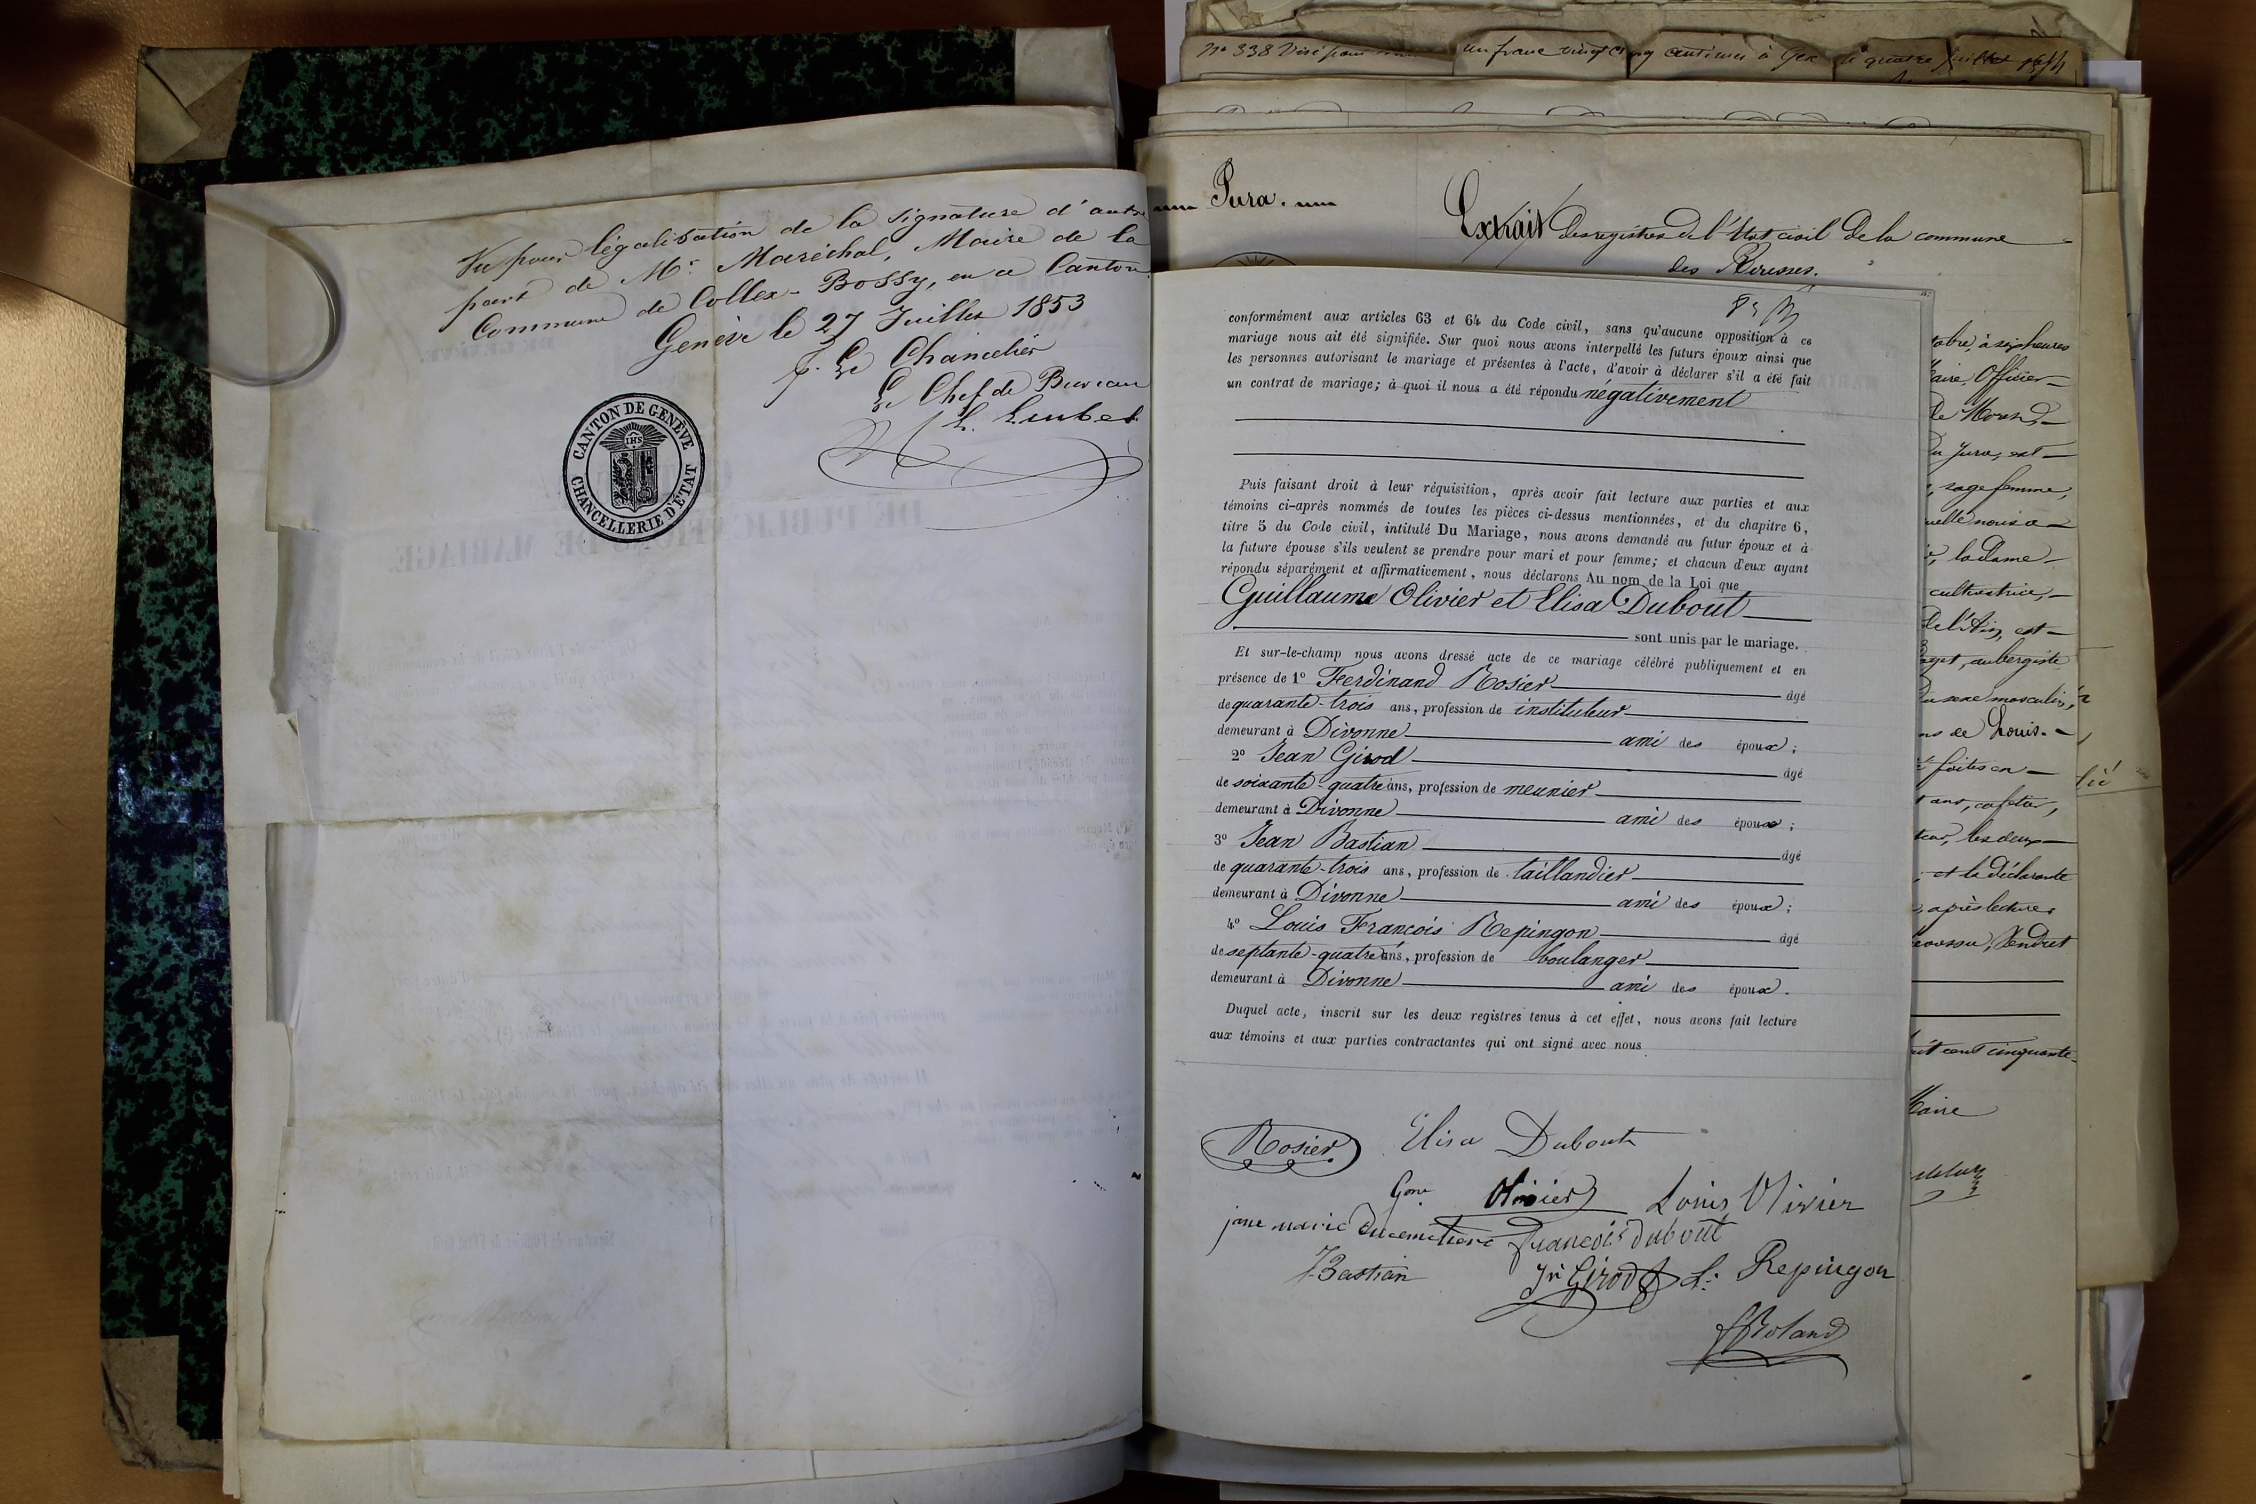 Vu pour légalisation de la signature d'autre
part de Mr. Maréchal, Maire de la
Commune de Collex-Bossy, en ce Canton
Genève le 27 Juillet 1853
p. Le Chancelier
Le Chef de Bureau
CANTON DE GENÈVE
IHS
CHANCELLERIE D'ÉTAT
No 338 Visé pour un franc vingt cinq centimes à Gex le quatre juillet
Jura.
Extrait des registres de l'état civil de la commune
des
conformément aux articles 63 et 64 du Code civil, sans qu'aucune opposition à ce
mariage nous ait été signifiée. Sur quoi nous avons interpellé les futurs époux ainsi que
les personnes autorisant le mariage et présentes à l'acte, d'avoir à déclarer s'il a été fait
un contrat de mariage; à quoi il nous a été répondu négativement
Puis faisant droit à leur réquisition, après avoir fait lecture aux parties et aux
témoins ci-après nommés de toutes les pièces ci-dessus mentionnées, et du chapitre 6,
titre 5 du Code civil, intitulé Du Mariage, nous avons demandé au futur époux et à
la future épouse s'ils veulent se prendre pour mari et pour femme; et chacun d'eux ayant
répondu séparément et affirmativement, nous déclarons Au nom de la Loi que
Guillaume Olivier et Elisa Dubout
sont unis par le mariage.
Et sur-le-champ nous avons dressé acte de ce mariage célébré publiquement et en
présence de 1º Ferdinand Rosier âgé
de quarante-trois ans, profession de instituteur
demeurant à Divonne ami des époux;
2º Jean Girod âgé
de soixante-quatre ans, profession de meunier
demeurant à Divonne ami des époux;
3º Jean Bastian âgé
de quarante-trois ans, profession de taillandier
demeurant à Divonne ami des époux;
4º Louis François Repingon âgé
de septante-quatre ans, profession de boulanger
demeurant à Divonne ami des époux.
Duquel acte, inscrit sur les deux registres tenus à cet effet, nous avons fait lecture
aux témoins et aux parties contractantes qui ont signé avec nous
Rosier Elisa Dubout
Gme Olivier Louis Olivier
jne marie Ducimetiere françois dubout
J. Bastian Jn Girod Ls Repingon
Roland
à six heures
Maire, Officier
de Morez
du Jura, est
sage femme,
la dame
cultivatrice,
de l'Ain, est
aubergiste
du sexe masculin,
de Louis.
faites en
ans, cafetier,
les deux
et la déclarante
après lecture
cent cinquante
Maire